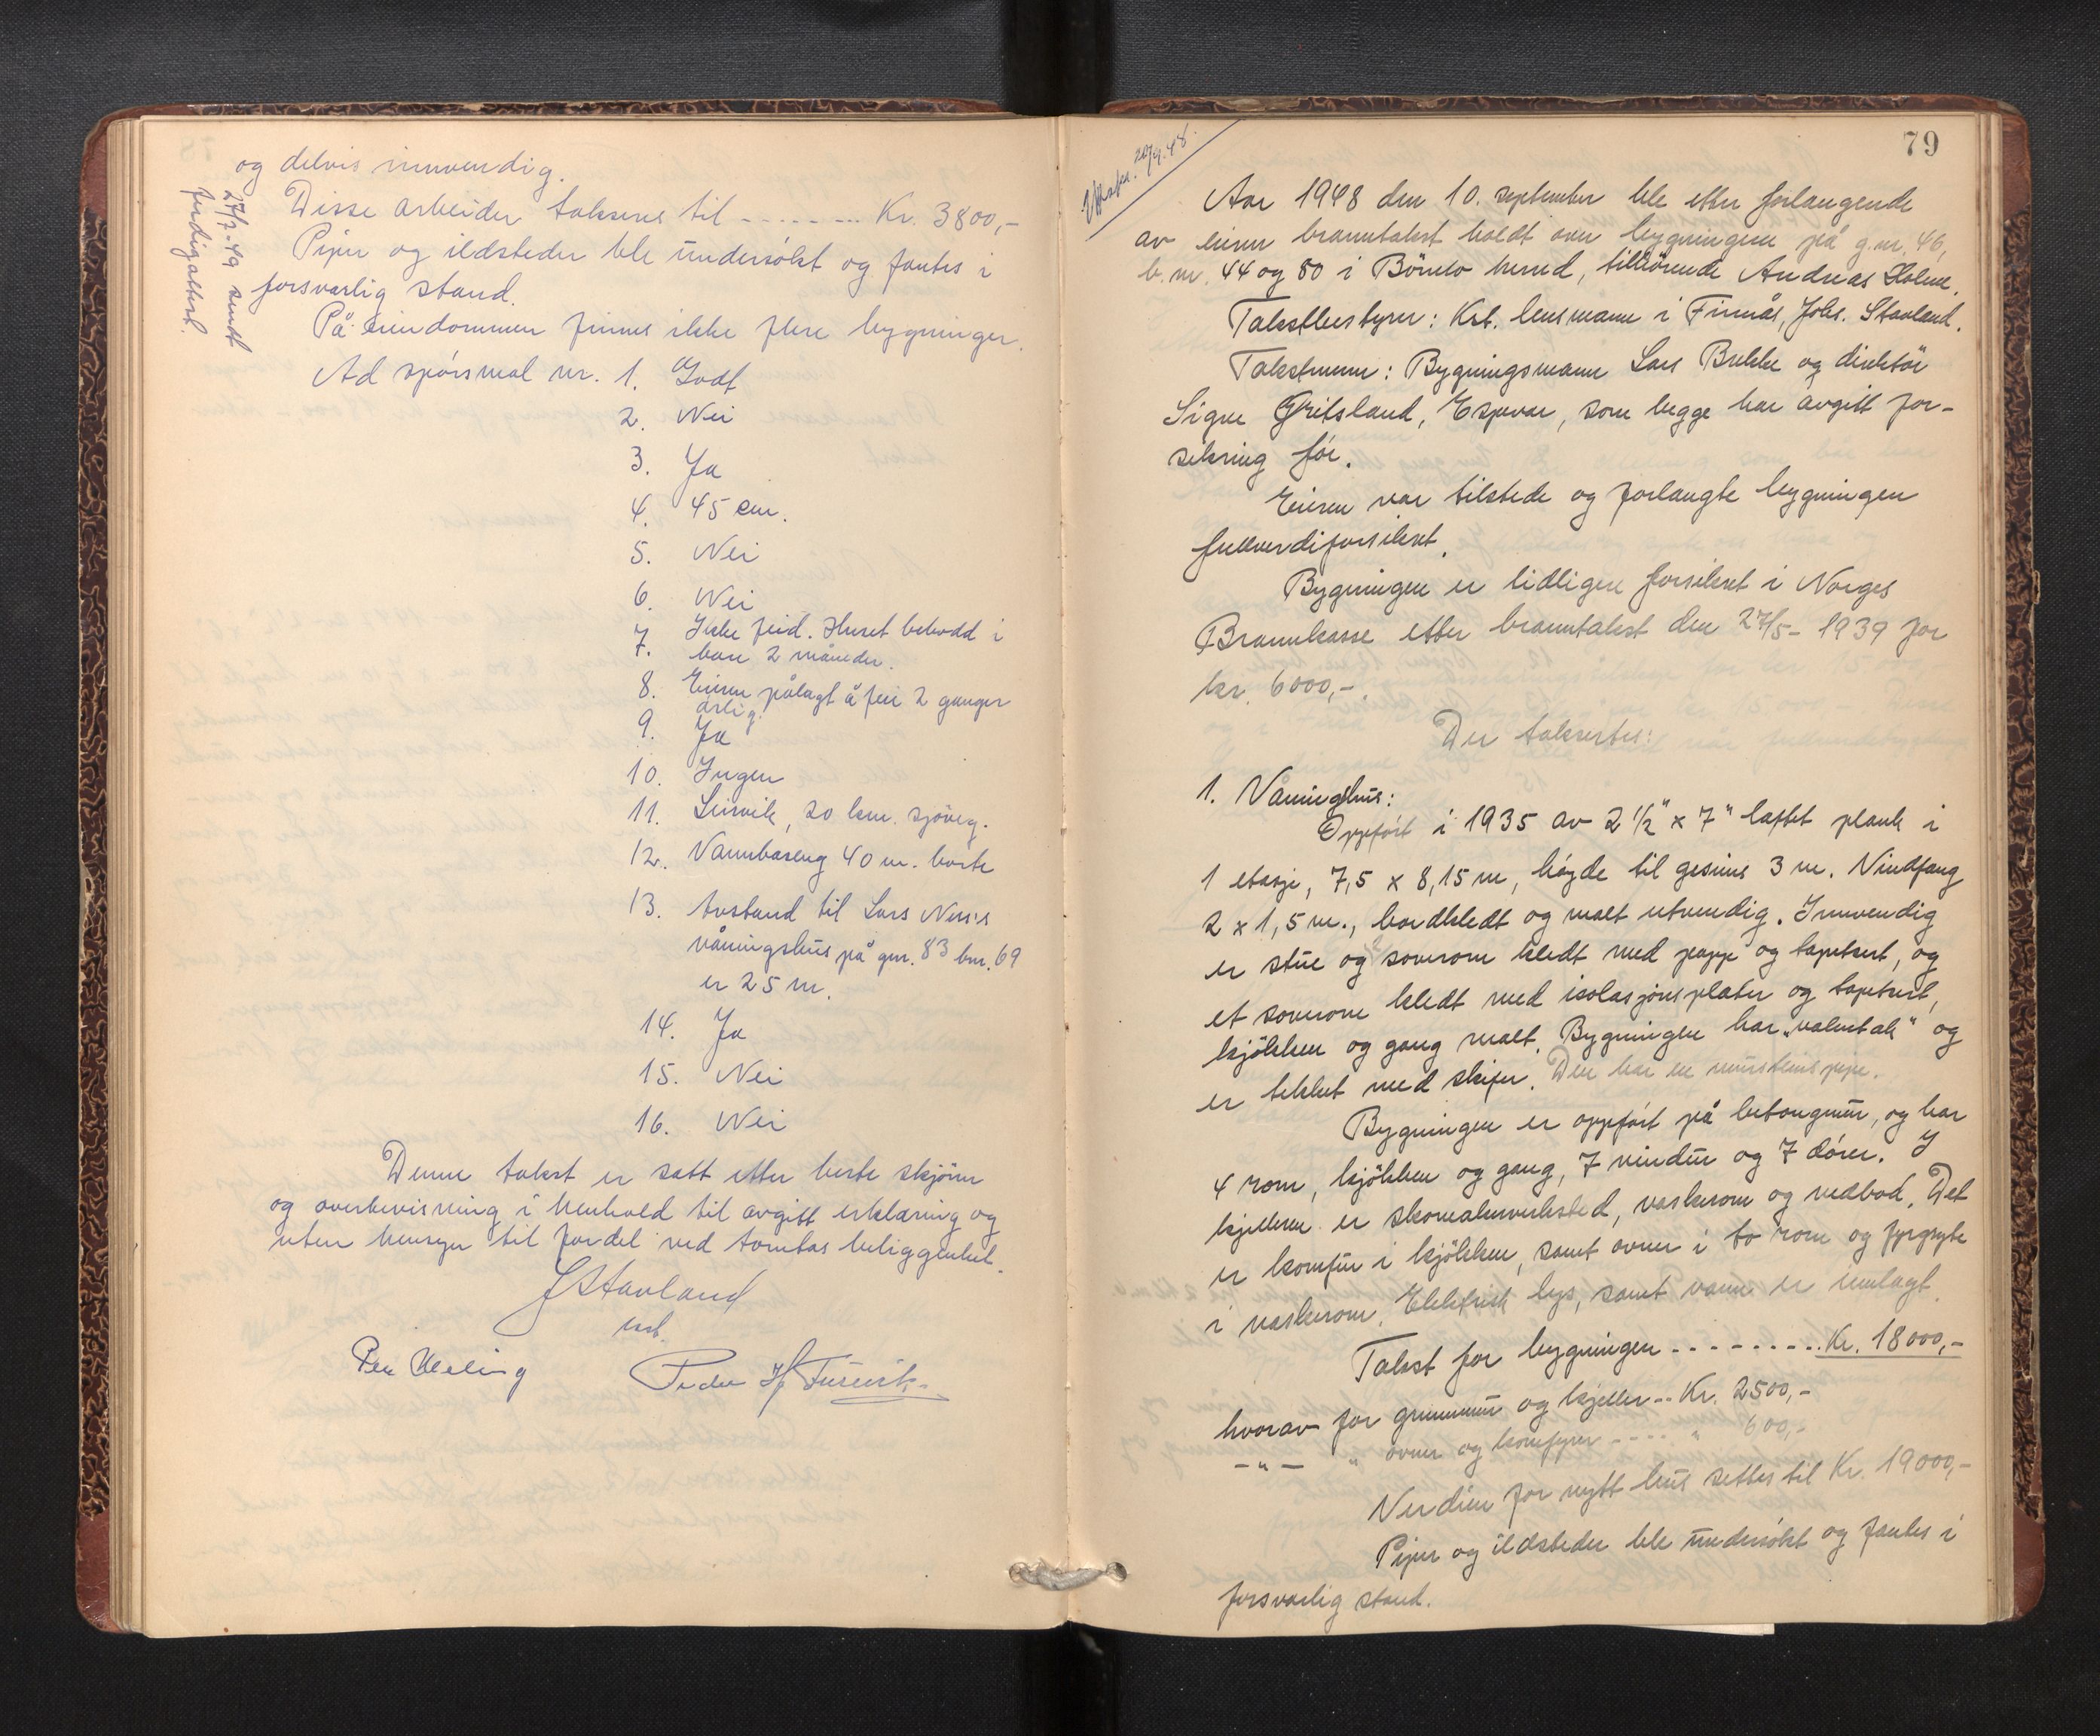 og delvis innvendig.
Disse arbeider takseres til -------- Kr. 3800,-
Piper og ildsteder ble undersökt og fantes i
forsvarlig stand.
På eiendommen finnes ikke flere bygninger.
27/7-49 sendt
ferdigattest.
Ad spörsmal nr. 1. Godt
2. Nei
3. Ja
4. 45 cm.
5. Nei
6. Nei
7. Ikke feid. Huset bebodd i
bare 2 måneder.
8. Eieren pålagt å feie 2 ganger
årlig.
9. Ja
10. Ingen
11. Leirvik, 20 km. sjöveg.
12. Vannbaseng 40 m. borte
13. Avstand til Lars Ness's
våningshus på gnr. 83 bnr. 69
er 25 m.
14. Ja
15. Nei
16. Nei
Denne takst er satt etter beste skjönn
og overbevisning i henhold til avgitt erklæring og
uten hensyn til fordel ved tomtas beliggenhet.
J Stavland
kst.
Per
Peder H
79
20/9.48.
Aar 1948 den 10. september ble etter forlangende
av eieren branntakst holdt over bygningen på g.nr. 46,
b.nr. 44 og 80 i Bömlo herred, tilhörende Andreas Holme.
Takstbestyrer: Kst. lensmann i Finnås, Johs. Stavland.
Takstmenn: Bygningsmann Lars Bekke og direktör
Signe Gritsland, Espevær, som begge har avgitt for-
sikring för.
Eieren var tilstede og forlangte bygningen
fullverdiforsikret.
Bygningen er tidligere forsikret i Norges
Brannkasse etter branntakst den 27/5- 1939 for
kr. 6000,-.
Der taksertes:
1. Våningshus:
Oppfört i 1935 av 2 1/2" x 7" laftet plank i
1 etasje, 7,5 x 8,15 m, höyde til gesims 3 m. Vindfang
2 x 1,5 m., bordkledt og malt utvendig. Innvendig
er stue og soverom kledt med papp og tapetsert, og
et soverom kledt med isolasjonsplater og tapetsert,
kjökken og gang malt. Bygningen har "valmtak" og
er tekket med skifer. Den har en mursteinspipe.
Bygningen er oppfört på betongmur, og har
4 rom, kjökken og gang, 7 vindu og 7 dörer. I
kjelleren er skomakerverksted, vaskerom og vedbod. Det
er komfur i kjökken, samt ovner i to rom og fyrgryte
i vaskerom. Elektrisk lys, samt vann er innlagt.
Takst for bygningen --------- Kr. 18000,-
hvorav for grunnmur og kjeller -- Kr. 2500,-
-"- " ovner og komfyrer ---- " 600,-
Verdien for nytt hus settes til Kr. 19000,-
Piper og ildsteder ble undersökt og fantes i
forsvarlig stand.